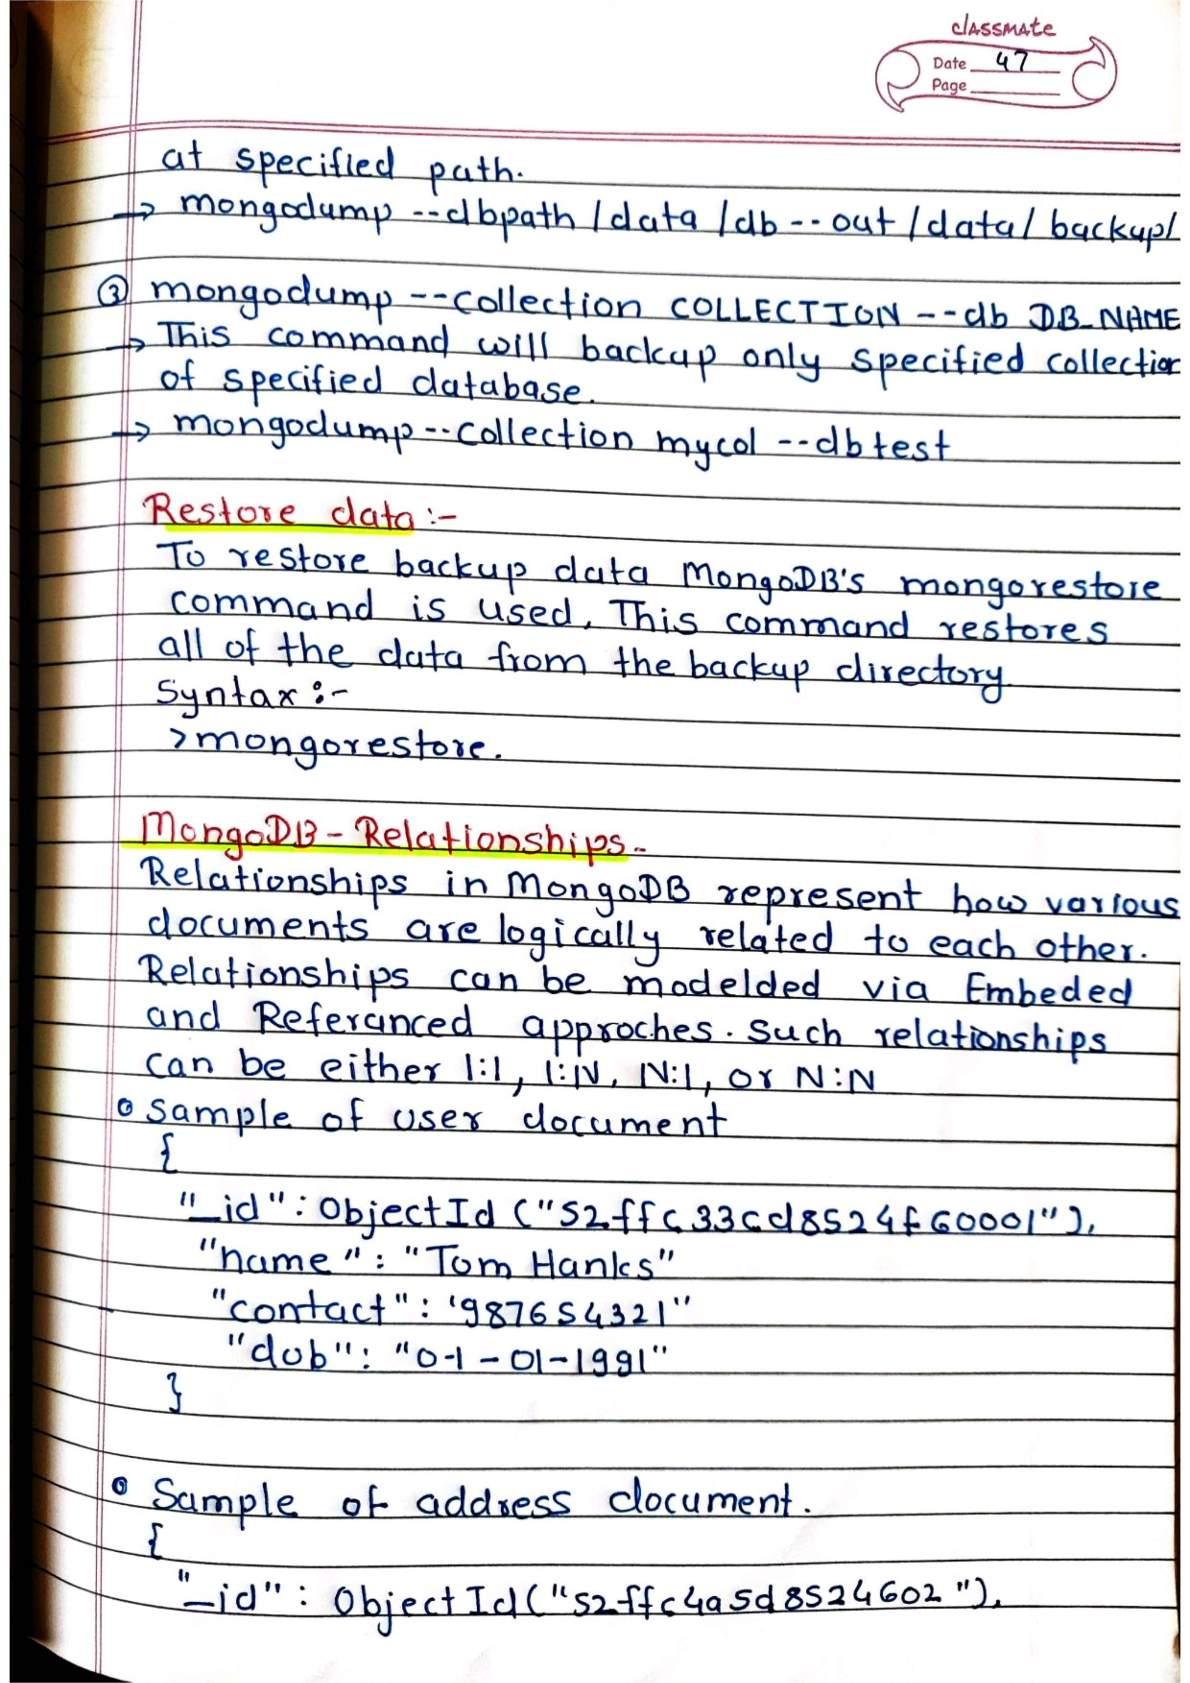 classmate
Date 47
Page
at specified path.
→ mongodump --dbpath /data /db -- out /data/ backup/
③ mongodump --collection COLLECTION --db DB_NAME
→ This command will backup only specified collection
of specified database.
→ mongodump -- collection mycol --db test
Restore data :-
To restore backup data MongoDB's mongorestore
command is used. This command restores
all of the data from the backup directory
Syntax :-
>mongorestore.
MongoDB - Relationships.-
Relationships in MongoDB represent how various
documents are logically related to each other.
Relationships can be modelded via Embeded
and Referanced approches. Such relationships
can be either 1:1, 1:N, N:1, or N:N
• Sample of user document
{
"_id" : ObjectId ("52ffc33cd8524f60001"),
"name" : "Tom Hanks"
"contact" : '987654321"
"dob" : "0-1 - 01-1991"
}
• Sample of address document.
{
"_id" : ObjectId ("52ffc4a5d8524602"),